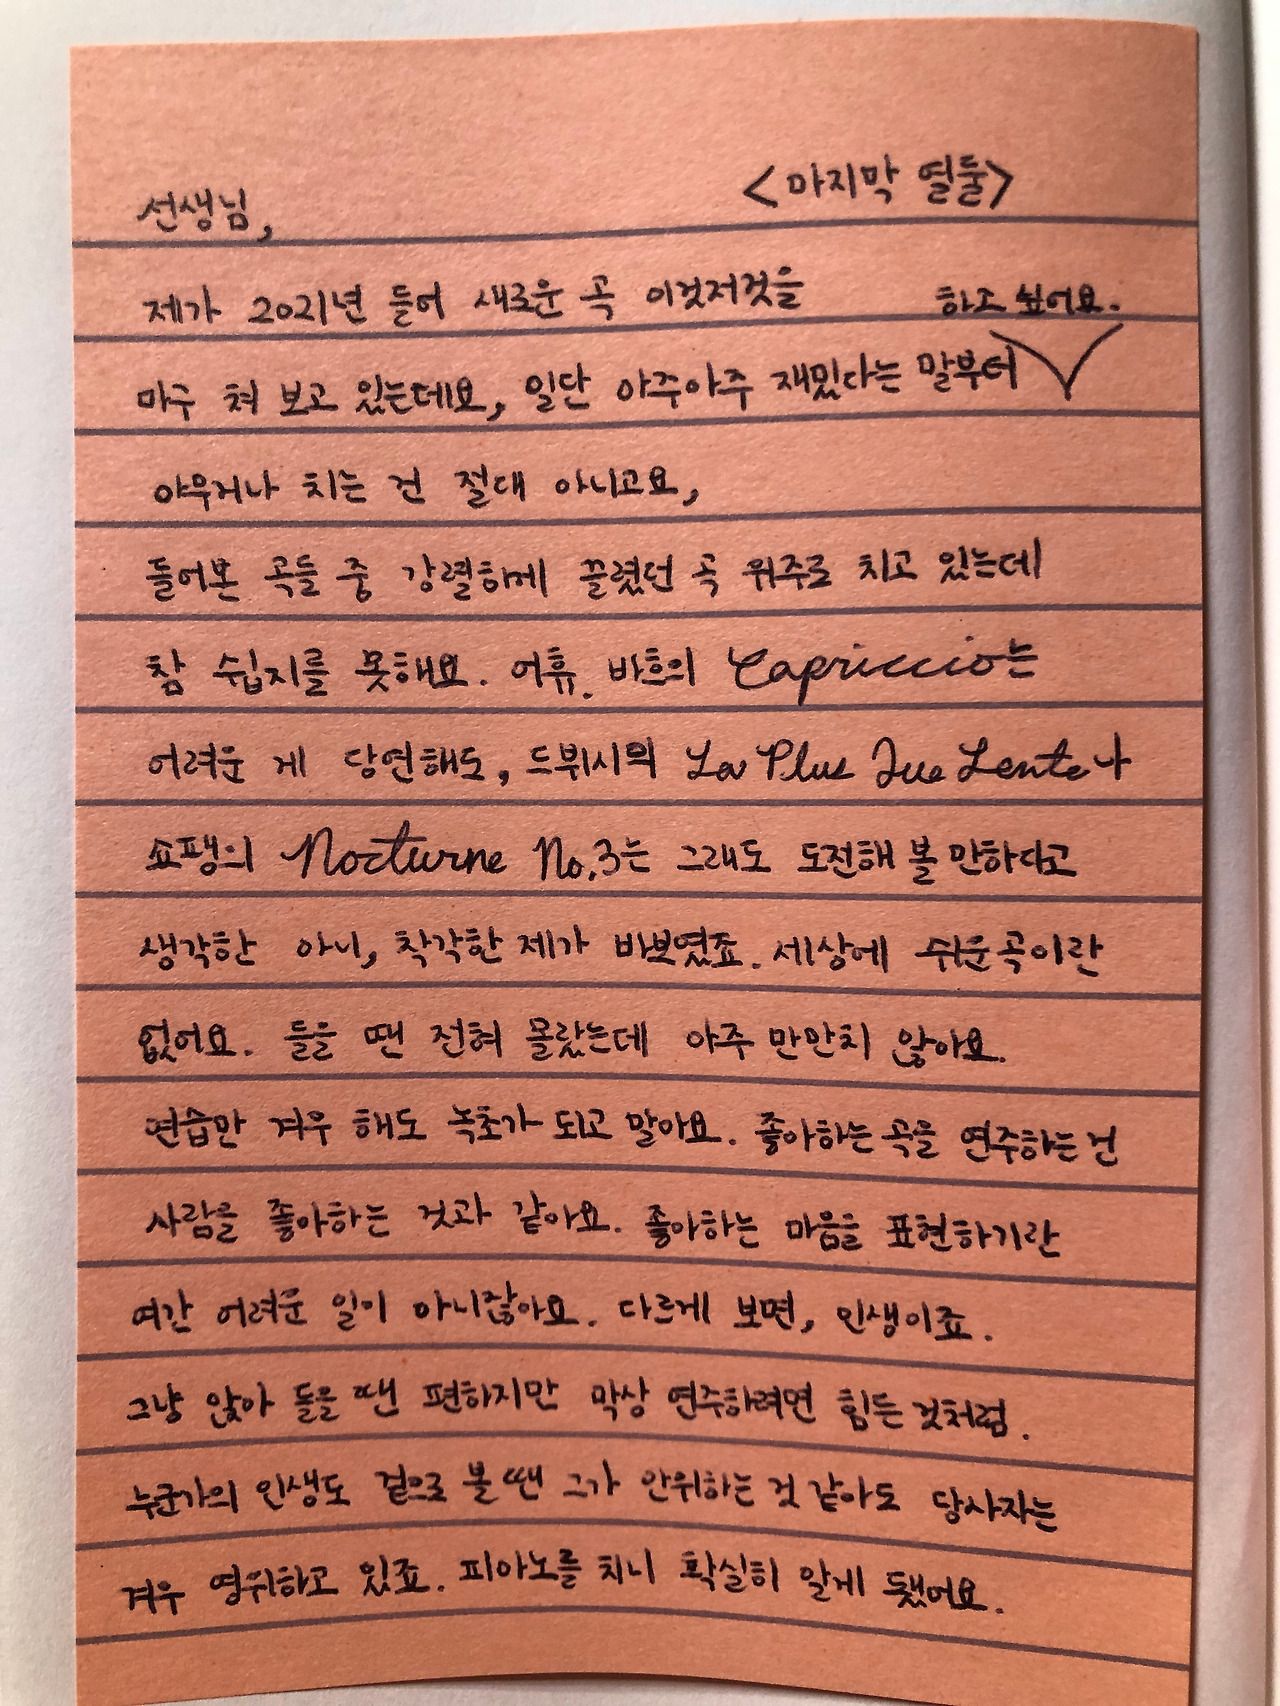 <마지막 열둘>
선생님,
제가 2021년 들어 새로운 곡 이것저것을
마구 쳐 보고 있는데요, 일단 아주아주 재밌다는 말부터 하고 싶어요.
아무거나 치는 건 절대 아니고요,
들어본 곡들 중 강렬하게 끌렸던 곡 위주로 치고 있는데
참 쉽지를 못해요. 어휴. 바흐의 Capriccio는
어려운 게 당연해도, 드뷔시의 La Plus Que Lente나
쇼팽의 Nocturne No.3는 그래도 도전해 볼 만하다고
생각한 아니, 착각한 제가 바보였죠. 세상에 쉬운 곡이란
없어요. 들을 땐 전혀 몰랐는데 아주 만만치 않아요.
연습만 겨우 해도 녹초가 되고 말아요. 좋아하는 곡을 연주하는 건
사람을 좋아하는 것과 같아요. 좋아하는 마음을 표현하기란
여간 어려운 일이 아니잖아요. 다르게 보면, 인생이죠.
그냥 앉아 들을 땐 편하지만 막상 연주하려면 힘든 것처럼.
누군가의 인생도 겉으로 볼 땐 그가 안위하는 것 같아도 당사자는
겨우 영위하고 있죠. 피아노를 치니 확실히 알게 됐어요.